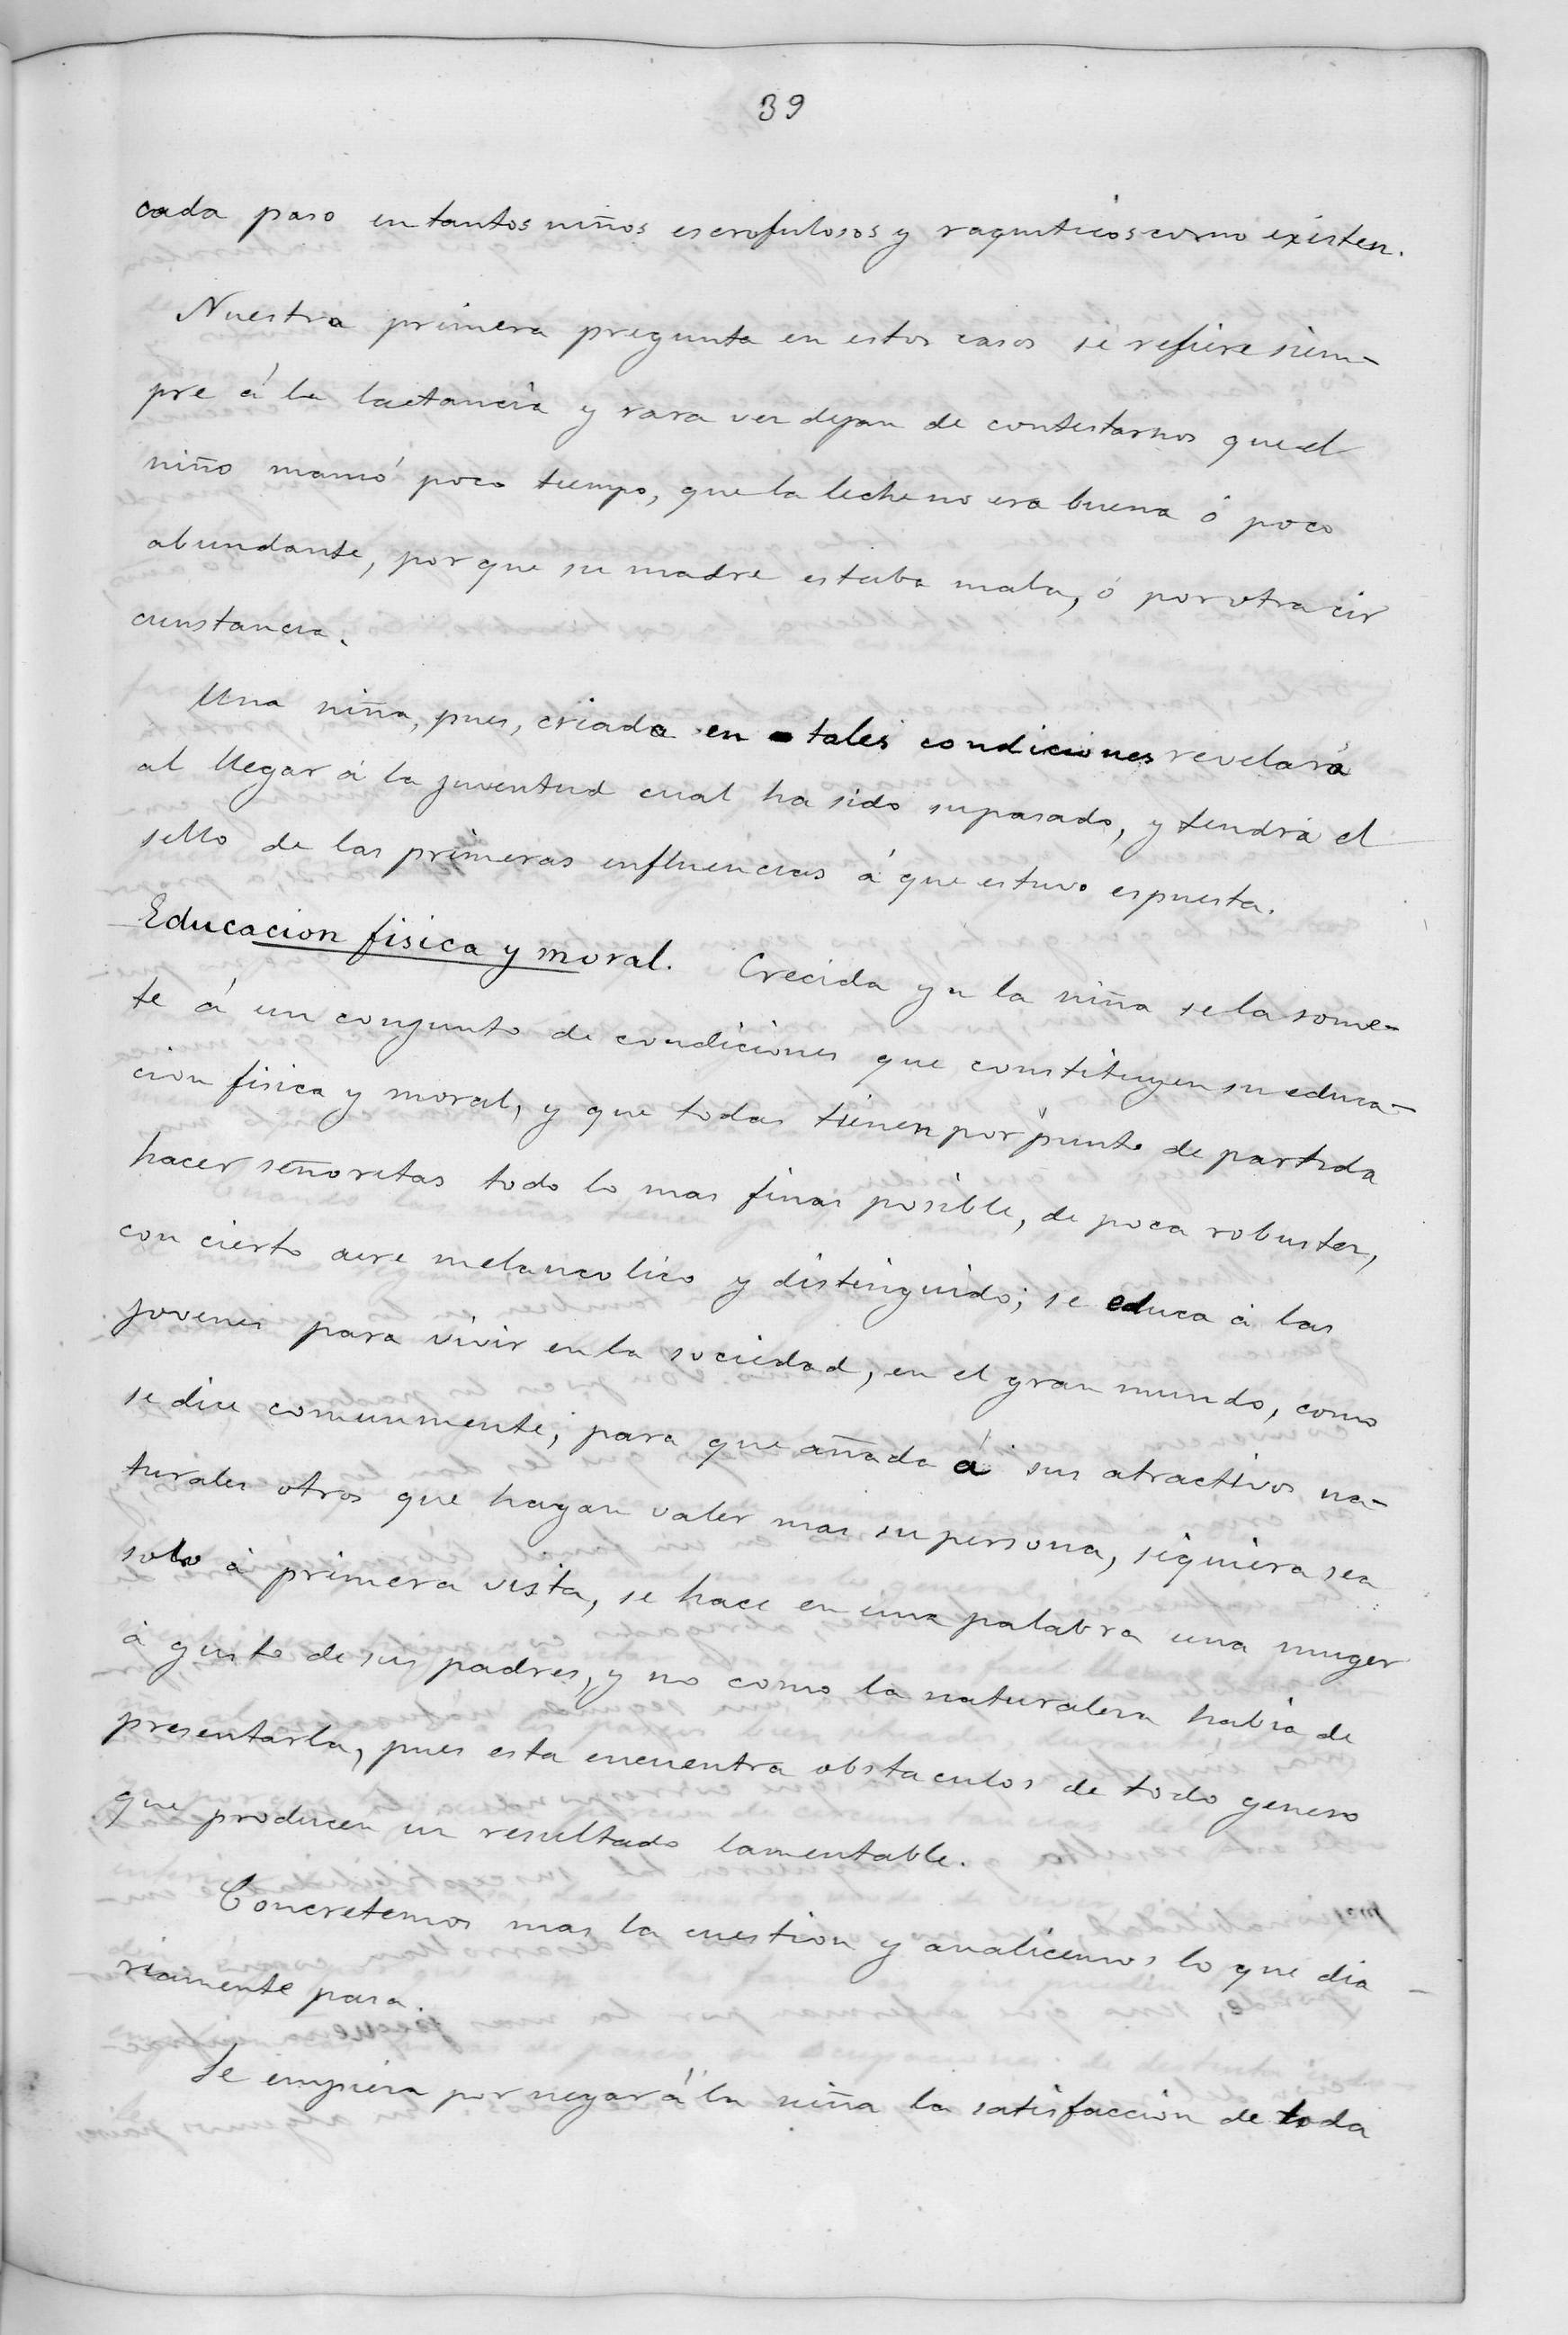 39
cada paso en tantos niños escrofulosos y raquiticos como existen.
Nuestra primera pregunta en estos casos se refiere siem-
pre á la lactancia y rara vez dejan de contestarnos que el
niño mamó poco tiempo, que la leche no era buena ó poco
abundante, por que su madre estaba mala, ó por otra cir
cunstancia.
Una niña, pues, criada en tales condiciones revelará
al llegar á la juventud cual ha sido su pasado, y tendrá el
sello de las primeras influencias á que estuvo espuesta.
Educacion fisica y moral. Crecida ya la niña se la some-
te á un conjunto de condiciones que constituyen su educa-
cion fisica y moral, y que todas tienen por punto de partida
hacer señoritas todo lo mas finas posible, de poca robustez,
con cierto aire melancolico y distinguido; se educa á las
jovenes para vivir en la sociedad, en el gran mundo, como
se dice comunmente; para que añada á sus atractivos na-
turales otros que hagan valer mas su persona, siquiera sea
solo á primera vista, se hace en una palabra una muger
á gusto de sus padres, y no como la naturaleza habia de
presentarla, pues esta encuentra obstaculos de todo genero
que producen un resultado lamentable.
Concretemos mas la cuestion y analicemos lo que dia-
riamente pasa.
Se empieza por negar á la niña la satisfaccion de toda